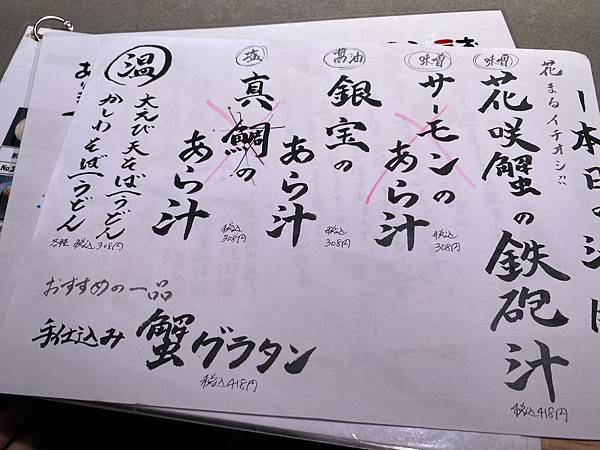 本日の汁
花まるイチオシ!!
味噌
花咲蟹の鉄砲汁
税込418円
味噌
サーモンのあら汁
税込308円
醤油
銀宝のあら汁
税込308円
塩
真鯛のあら汁
税込308円
温
大えび天そば/うどん
かしわそば/うどん
各種 税込308円
おすすめの一品
手仕込み 蟹グラタン
税込418円